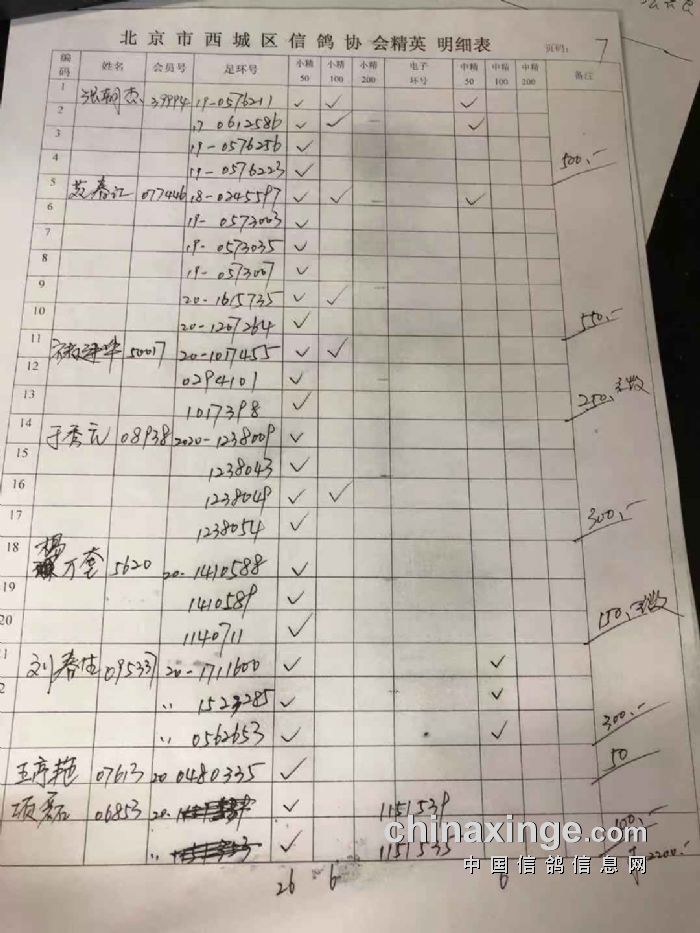 北京市西城区信鸽协会精英 明细表 页码: 7
编码 姓名 会员号 足环号 小精50 小精100 小精200 电子环号 中精50 中精100 中精200 备注
1 张朝杰 39994 19-0576211 ✓ ✓ ✓
2 19 0612586 ✓ ✓ ✓
3 19-0576256 ✓
4 19-0576223 ✓ 500,-
5 077446 18-0245597 ✓ ✓ ✓
6 19-0573003 ✓
7 19-0573035 ✓
8 19-0573007 ✓
9 20-1615735 ✓ ✓
10 20-1207264 ✓ 550,-
11 50017 20-1017455 ✓ ✓
12 0294101 ✓
13 1017398 ✓ 250,
14 于秀云 08938 2020-1238009 ✓
15 1238043 ✓
16 1238049 ✓ ✓
17 1238054 ✓ 300,-
18 杨万奎 5620 20-1410588 ✓
19 1410589 ✓
20 1140711 ✓ 150,
1 刘春生 095337 20-1711600 ✓ ✓
2 " 1523285 ✓ ✓
" 0562653 ✓ ✓ 300,-
07613 20 0480335 ✓ 50
项磊 06853 20- ✓ 1151539 100,-
" ✓ 1151535 2200,-
26 6
chinaxinge.com
中国信鸽信息网